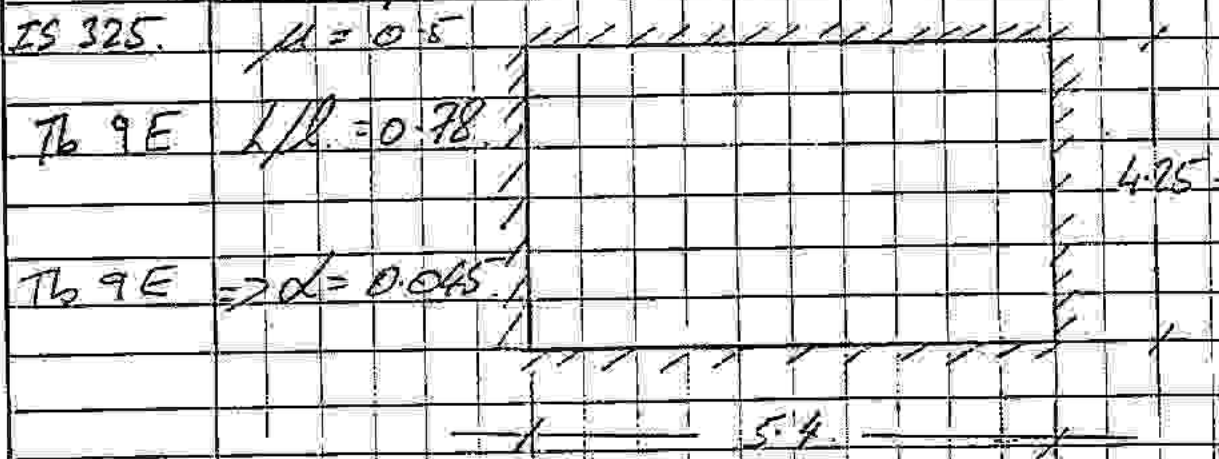 IS 325. μ = 0.5
Tb 9E L/l = 0.78
4.25
Tb 9E => α = 0.045
5.4